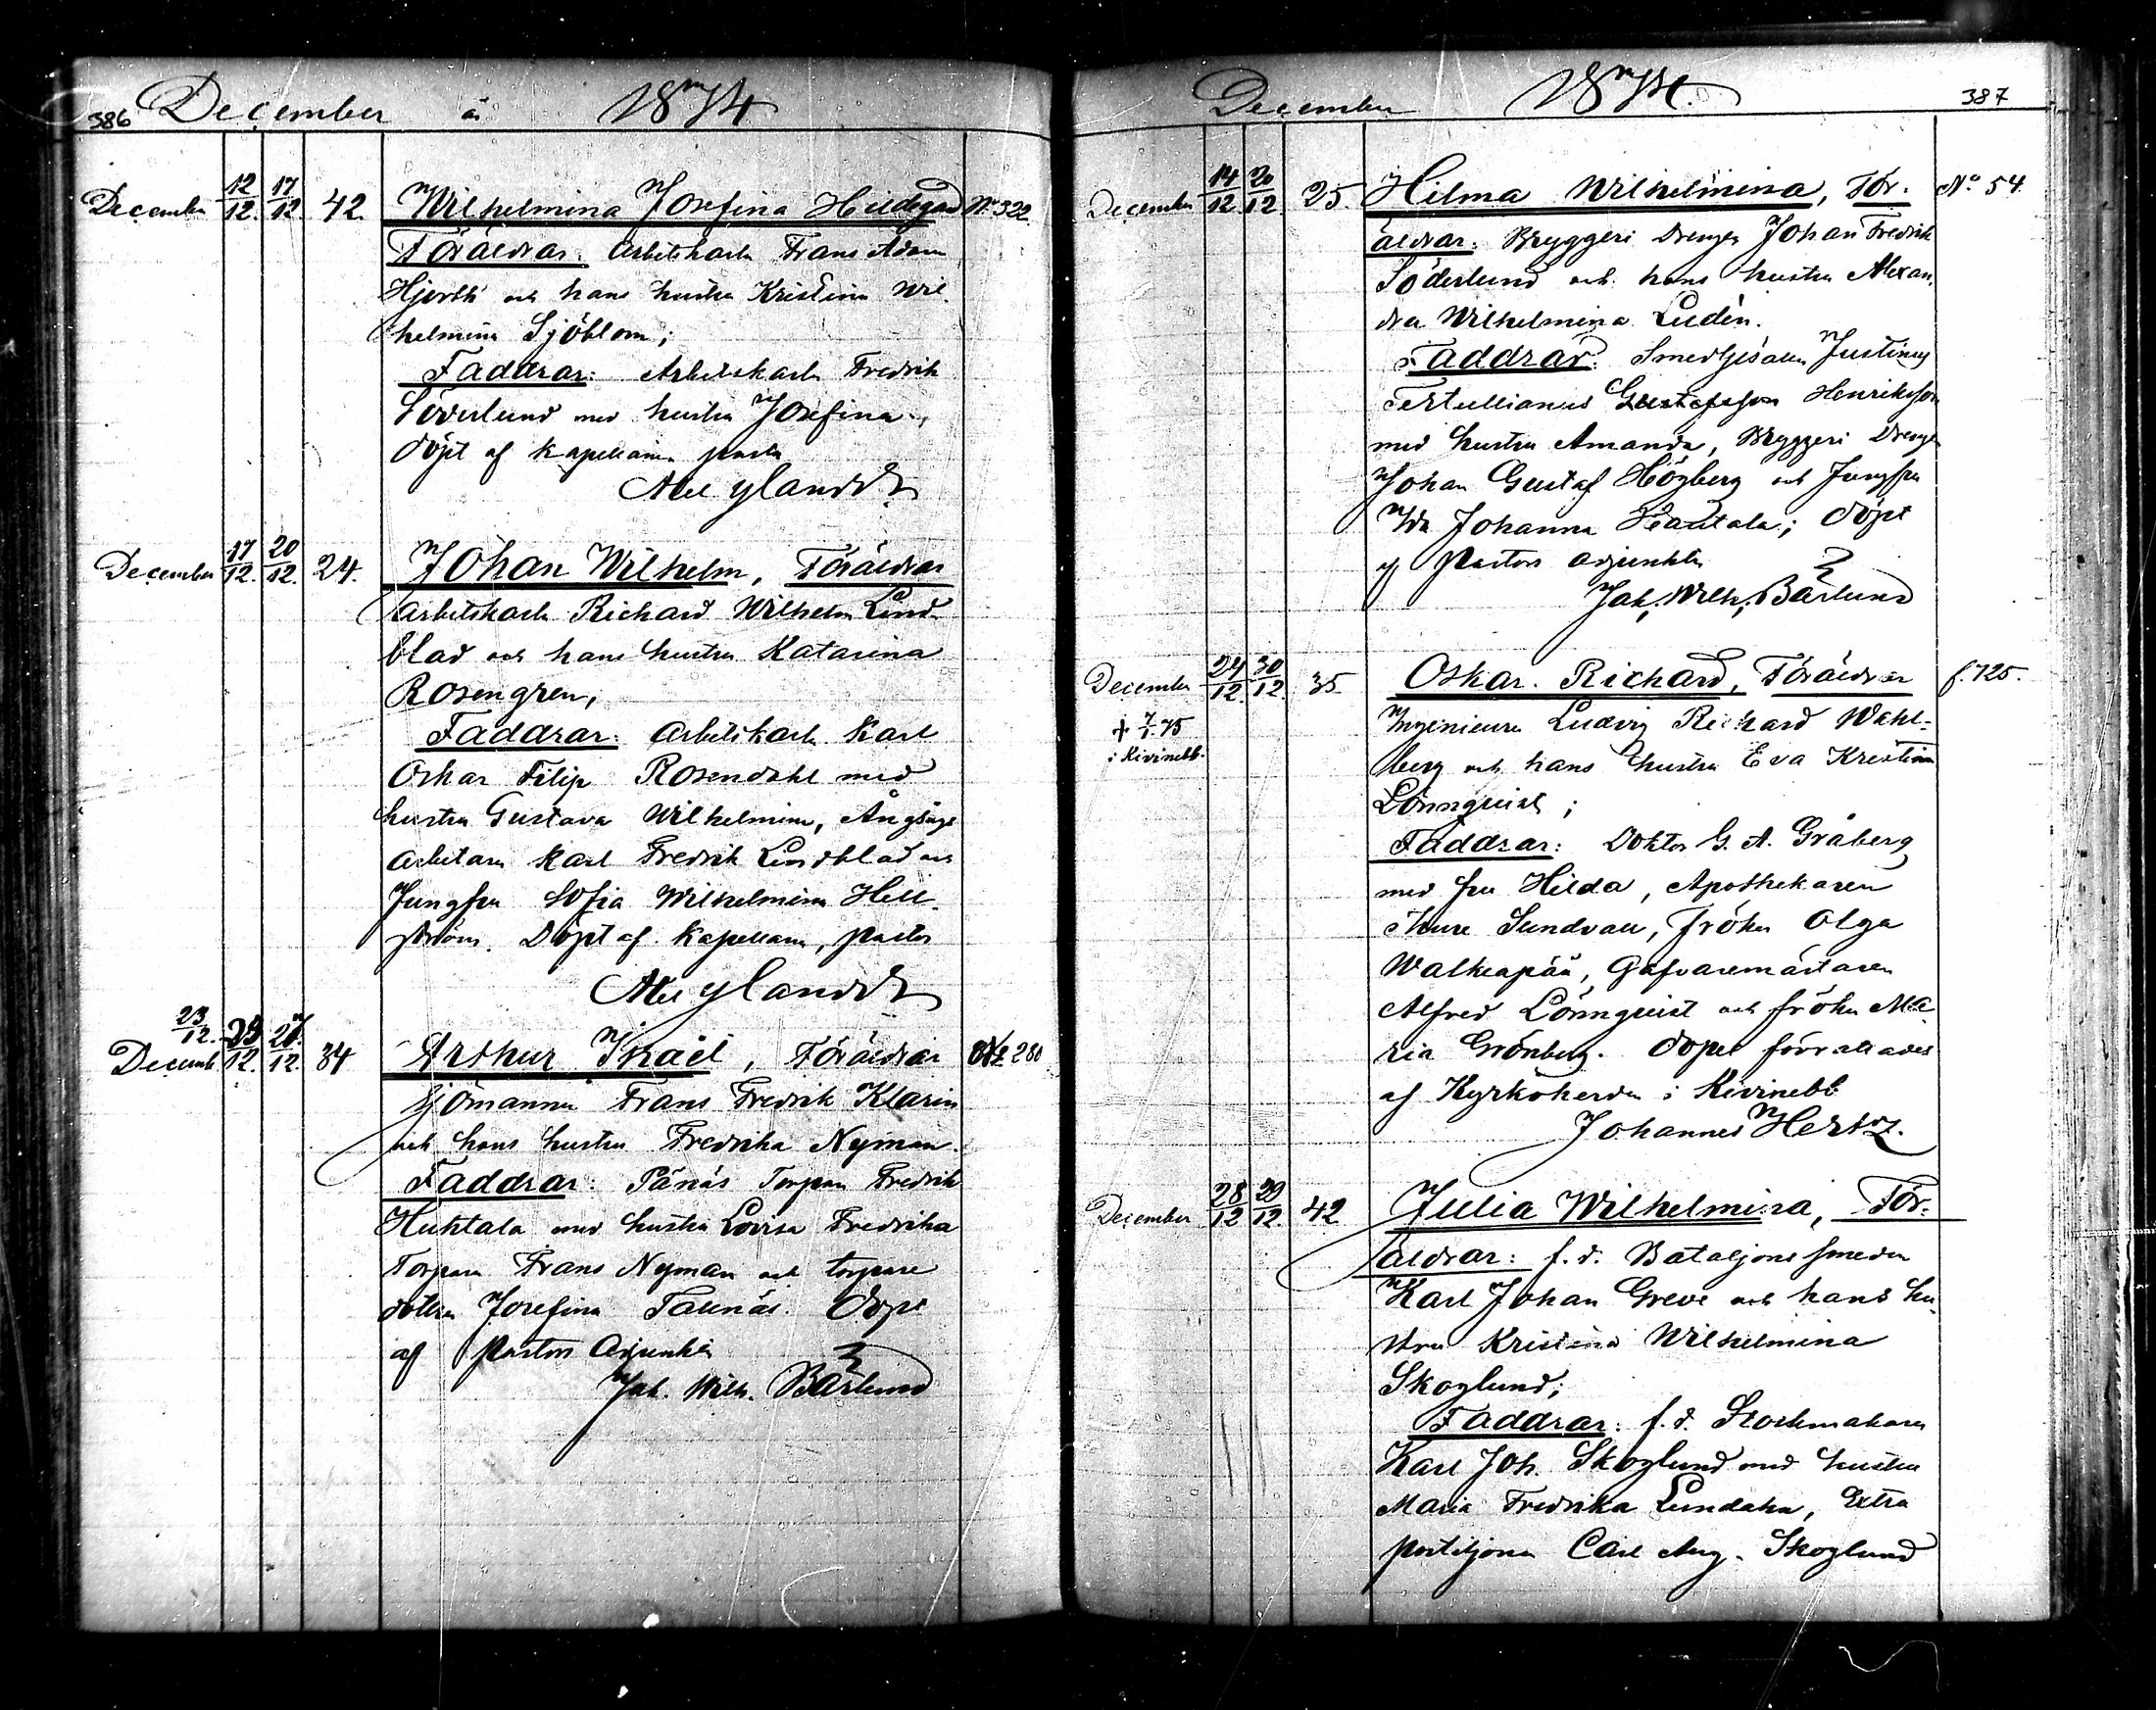 386 December år 1874
December 12/12. 17/12 42. Wilhelmina Josefina Hildegard No 322.
Föräldrar: Arbetskarln Frans Adam
Hjorth och hans hustru Kristina Wil-
helmina Sjöblom;
Faddrar: Arbetskarln Fredrik
Söderlund med hustru Josefina.
döpt af Kapellanen, pastor
Nylandr
December 17/12. 20/12. 24. Johan Wilhelm, Föräldrar
Arbetskarln Richard Wilhelm Lind-
blad och hans hustru Katarina
Rosengren,
Faddrar: Arbetskarln Karl
Oskar Filip Rosendahl med
hustru Gustava Wilhelmina, Ångsågs
arbetaren Karl Fredrik Lindblad och
Jungfru Sofia Wilhelmina Hell-
ström. Döpt af Kapellanen, pastor
Nylandr
23/12.
Decemb 12. 27/12. 34 Arthur Israël, Föräldrar No 280
Sjömannen Frans Fredrik Klarin
och hans hustru Fredrika Nyman.
Faddrar: Torparen Fredrik
Huhtala med hustru Lovisa Fredrika
Torparen Frans Nyman och torpare
dottren Josefina Döpt
af Pastors Adjunkten
Joh. Wilh. Bärlund
December 1874. 387
December 14/12 20/12 25. Hilma Wilhelmina, För- No 54.
äldrar: Bryggeri Drengen Johan Fredrik
Söderlund och hans hustru Alexan-
dra Wilhelmina Ludén.
Faddrar: Smedgesällen Justinus
Tertullianus Gustafsson Henriksson
med hustru Amanda, Bryggeri Drengen
Johan Gustaf Högberg och Jungfru
Ida Johanna döpt
af Pastors adjunkten
Joh. Wilh. Bärlund
December 24/12. 30/12. 35. Oskar Richard, Föräldrar f. 125.
† 7/1 75
i Kivinebb.
Ingenieuren Ludvig Richard Wahl-
berg och hans hustru Eva Kristina
Lönnquist;
Faddrar: Doktor G. A. Gråberg
med fru Hilda, Apothekaren
Thure Sundvall, fröken Olga
Walkeapää, Garfvaremästaren
Alfred Lönnquist och fröken Ma-
ria Grönberg. Dopet förrättades
af Kyrkoherden i Kivinebb
Johannes Hertz.
December 28/12 29/12. 42 Julia Wilhelmina, För-
äldrar: f. d. Bataljons smeden
Karl Johan Greve och hans hu-
stru Kristina Wilhelmina
Skoglund;
Faddrar: f. d. Stockmakaren
Karl Joh. Skoglund med hustru
Maria Fredrika Lundahn, Extra
postiljonen Carl Aug. Skoglund